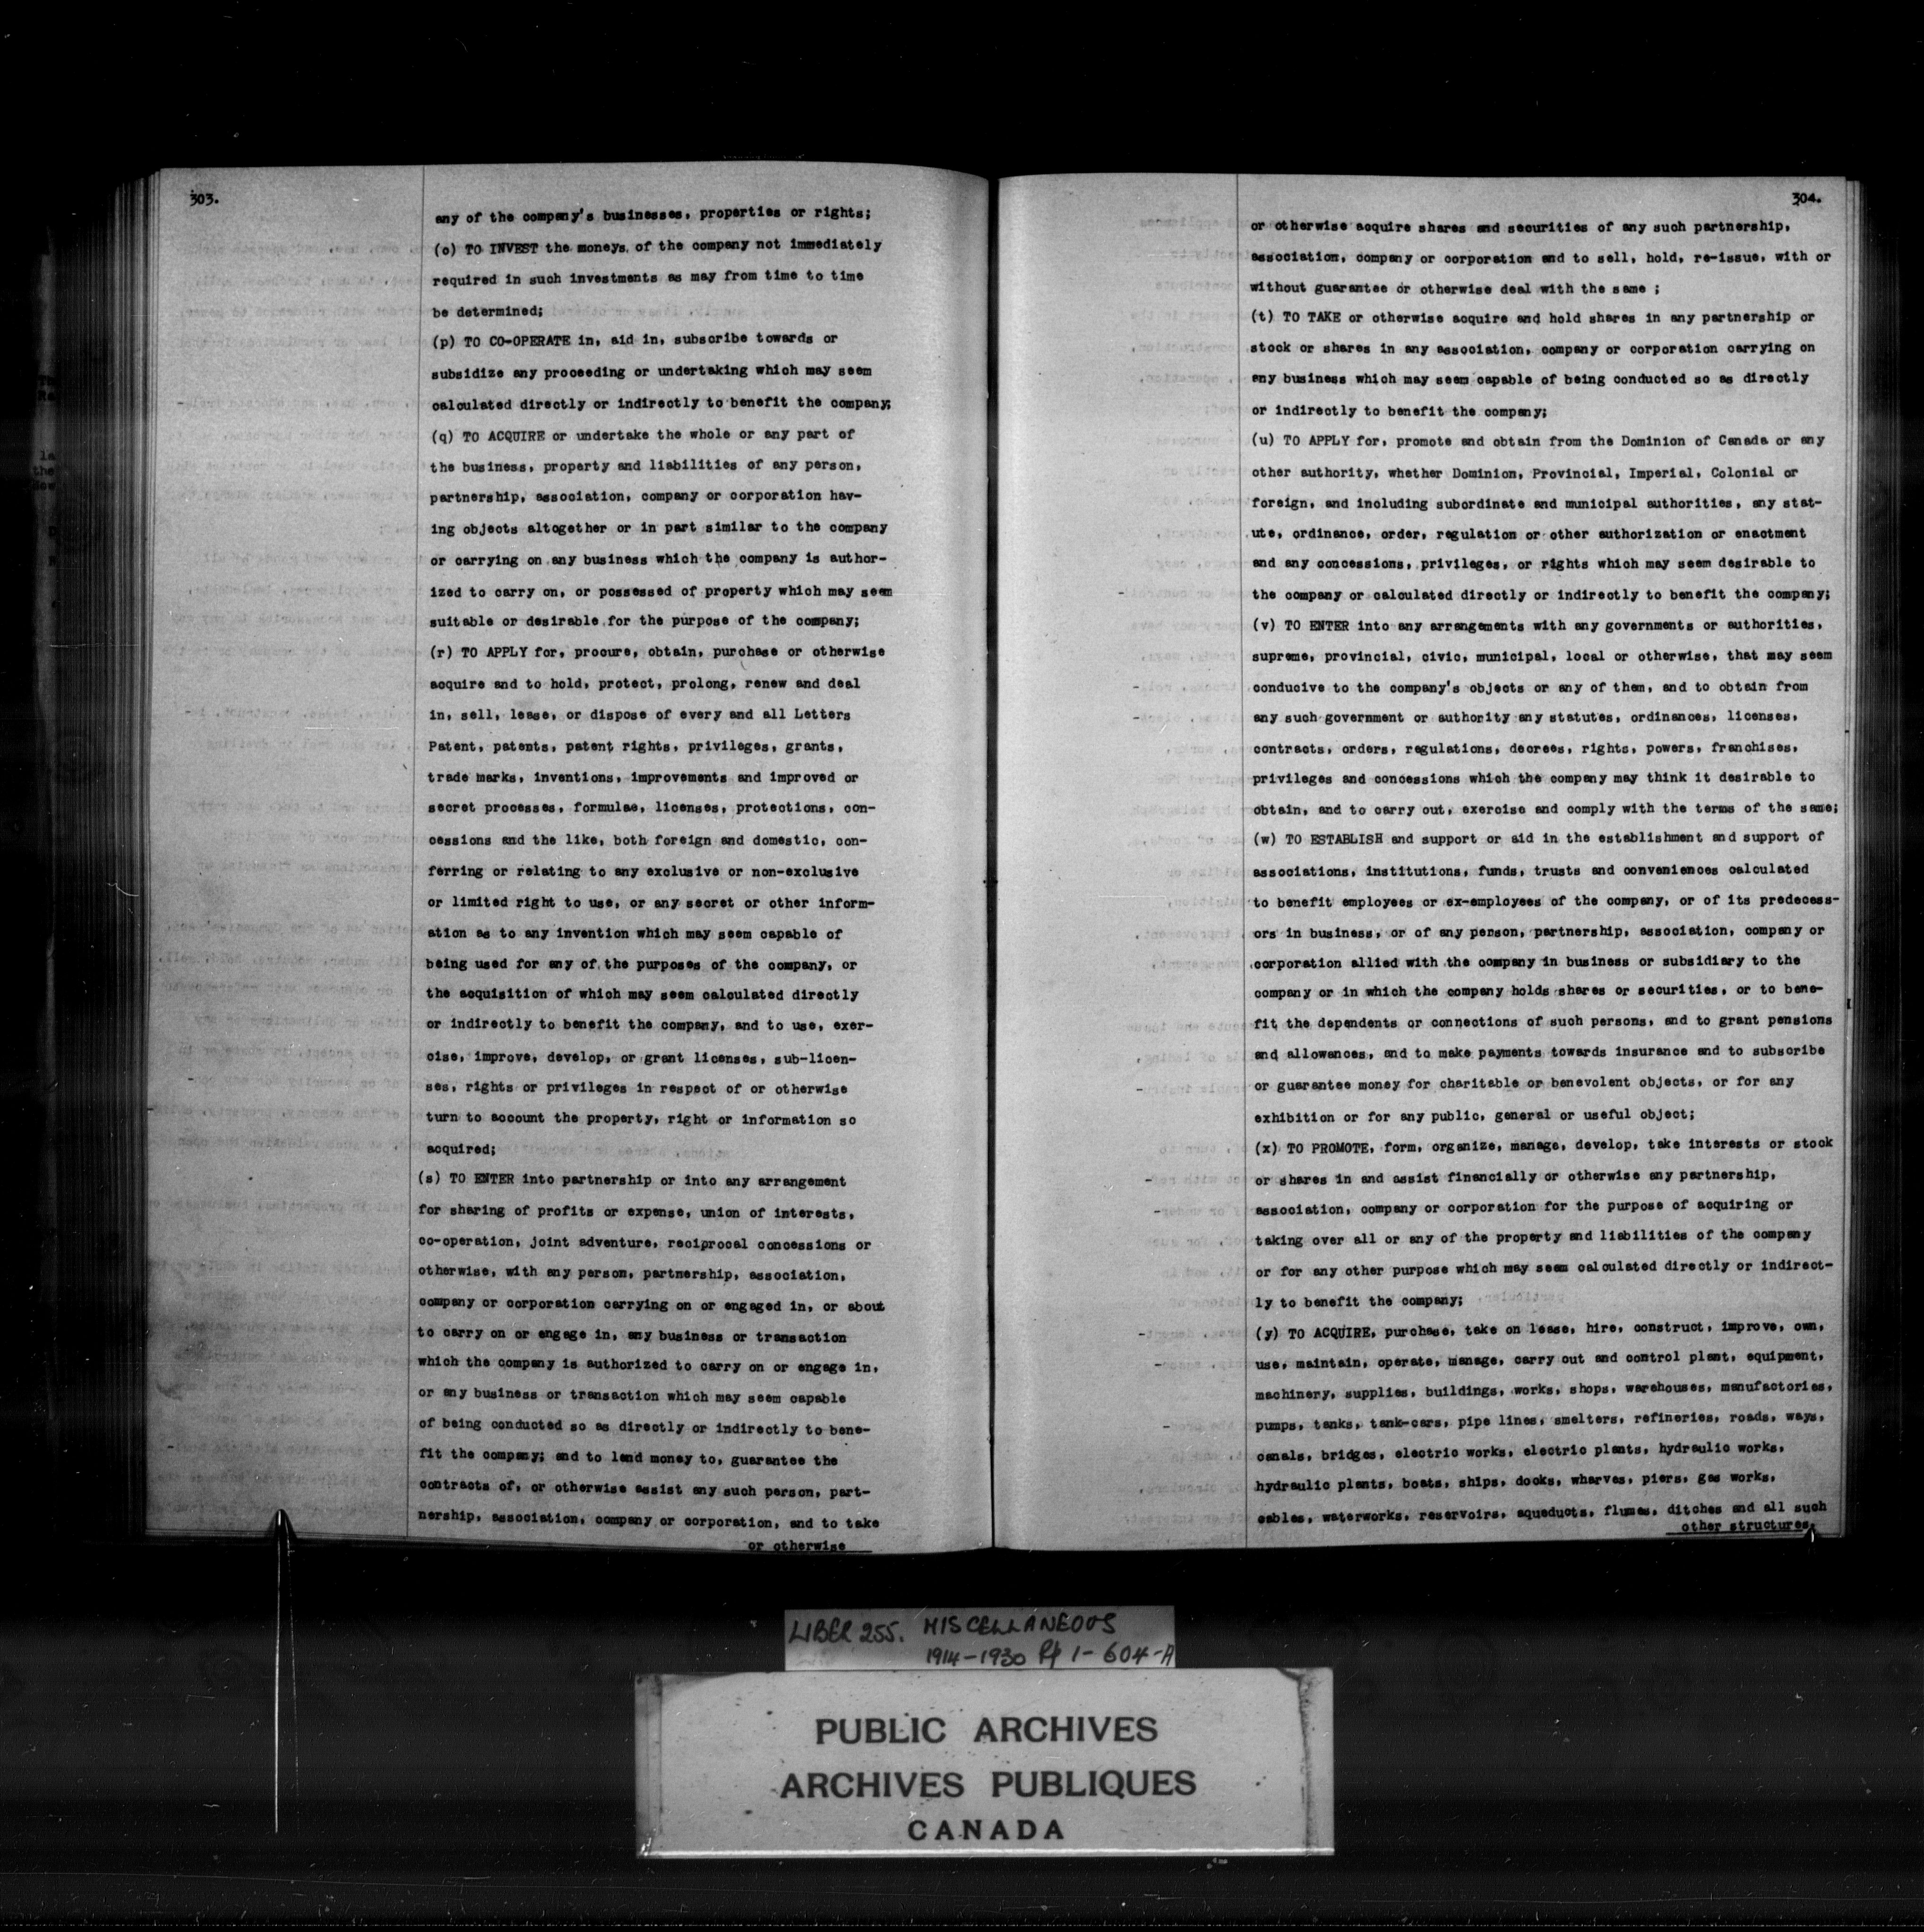 303.
any of the company's businesses, properties or rights;
(o) TO INVEST the moneys of the company not immediately
required in such investments as may from time to time
be determined;
(p) TO CO-OPERATE in, aid in, subscribe towards or
subsidize any proceeding or undertaking which may seem
calculated directly or indirectly to benefit the company;
(q) TO ACQUIRE or undertake the whole or any part of
the business, property and liabilities of any person,
partnership, association, company or corporation hav-
ing objects altogether or in part similar to the company
or carrying on any business which the company is author-
ized to carry on, or possessed of property which may seem
suitable or desirable for the purpose of the company;
(r) TO APPLY for, procure, obtain, purchase or otherwise
acquire and to hold, protect, prolong, renew and deal
in, sell, lease, or dispose of every and all Letters
Patent, patents, patent rights, privileges, grants,
trade marks, inventions, improvements and improved or
secret processes, formulae, licenses, protections, con-
cessions and the like, both foreign and domestic, con-
ferring or relating to any exclusive or non-exclusive
or limited right to use, or any secret or other inform-
ation as to any invention which may seem capable of
being used for any of the purposes of the company, or
the acquisition of which may seem calculated directly
or indirectly to benefit the company, and to use, exer-
cise, improve, develop, or grant licenses, sub-licen-
ses, rights or privileges in respect of or otherwise
turn to account the property, right or information so
acquired;
(s) TO ENTER into partnership or into any arrangement
for sharing of profits or expense, union of interests,
co-operation, joint adventure, reciprocal concessions or
otherwise, with any person, partnership, association,
company or corporation carrying on or engaged in, or about
to carry on or engage in, any business or transaction
which the company is authorized to carry on or engage in,
or any business or transaction which may seem capable
of being conducted so as directly or indirectly to bene-
fit the company; and to lend money to, guarantee the
contracts of, or otherwise assist any such person, part-
nership, association, company or corporation, and to take
or otherwise
304.
or otherwise acquire shares and securities of any such partnership,
association, company or corporation and to sell, hold, re-issue, with or
without guarantee or otherwise deal with the same ;
(t) TO TAKE or otherwise acquire and hold shares in any partnership or
stock or shares in any association, company or corporation carrying on
any business which may seem capable of being conducted so as directly
or indirectly to benefit the company;
(u) TO APPLY for, promote and obtain from the Dominion of Canada or any
other authority, whether Dominion, Provincial, Imperial, Colonial or
foreign, and including subordinate and municipal authorities, any stat-
ute, ordinance, order, regulation or other authorization or enactment
and any concessions, privileges, or rights which may seem desirable to
the company or calculated directly or indirectly to benefit the company;
(v) TO ENTER into any arrangements with any governments or authorities,
supreme, provincial, civic, municipal, local or otherwise, that may seem
conducive to the company's objects or any of them, and to obtain from
any such government or authority any statutes, ordinances, licenses,
contracts, orders, regulations, decrees, rights, powers, franchises,
privileges and concessions which the company may think it desirable to
obtain, and to carry out, exercise and comply with the terms of the same;
(w) TO ESTABLISH and support or aid in the establishment and support of
associations, institutions, funds, trusts and conveniences calculated
to benefit employees or ex-employees of the company, or of its predecess-
ors in business, or of any person, partnership, association, company or
corporation allied with the company in business or subsidiary to the
company or in which the company holds shares or securities, or to bene-
fit the dependents or connections of such persons, and to grant pensions
and allowances, and to make payments towards insurance and to subscribe
or guarantee money for charitable or benevolent objects, or for any
exhibition or for any public, general or useful object;
(x) TO PROMOTE, form, organize, manage, develop, take interests or stock
or shares in and assist financially or otherwise any partnership,
association, company or corporation for the purpose of acquiring or
taking over all or any of the property and liabilities of the company
or for any other purpose which may seem calculated directly or indirect-
ly to benefit the company;
(y) TO ACQUIRE, purchase, take on lease, hire, construct, improve, own,
use, maintain, operate, manage, carry out and control plant, equipment,
machinery, supplies, buildings, works, shops, warehouses, manufactories,
pumps, tanks, tank-cars, pipe lines, smelters, refineries, roads, ways,
canals, bridges, electric works, electric plants, hydraulic works,
hydraulic plants, boats, ships, docks, wharves, piers, gas works,
cables, waterworks, reservoirs, aqueducts, flumes, ditches and all such
other structures,
LIBER 255. MISCELLANEOUS
1914-1930 Pp 1-604-A
PUBLIC ARCHIVES
ARCHIVES PUBLIQUES
CANADA